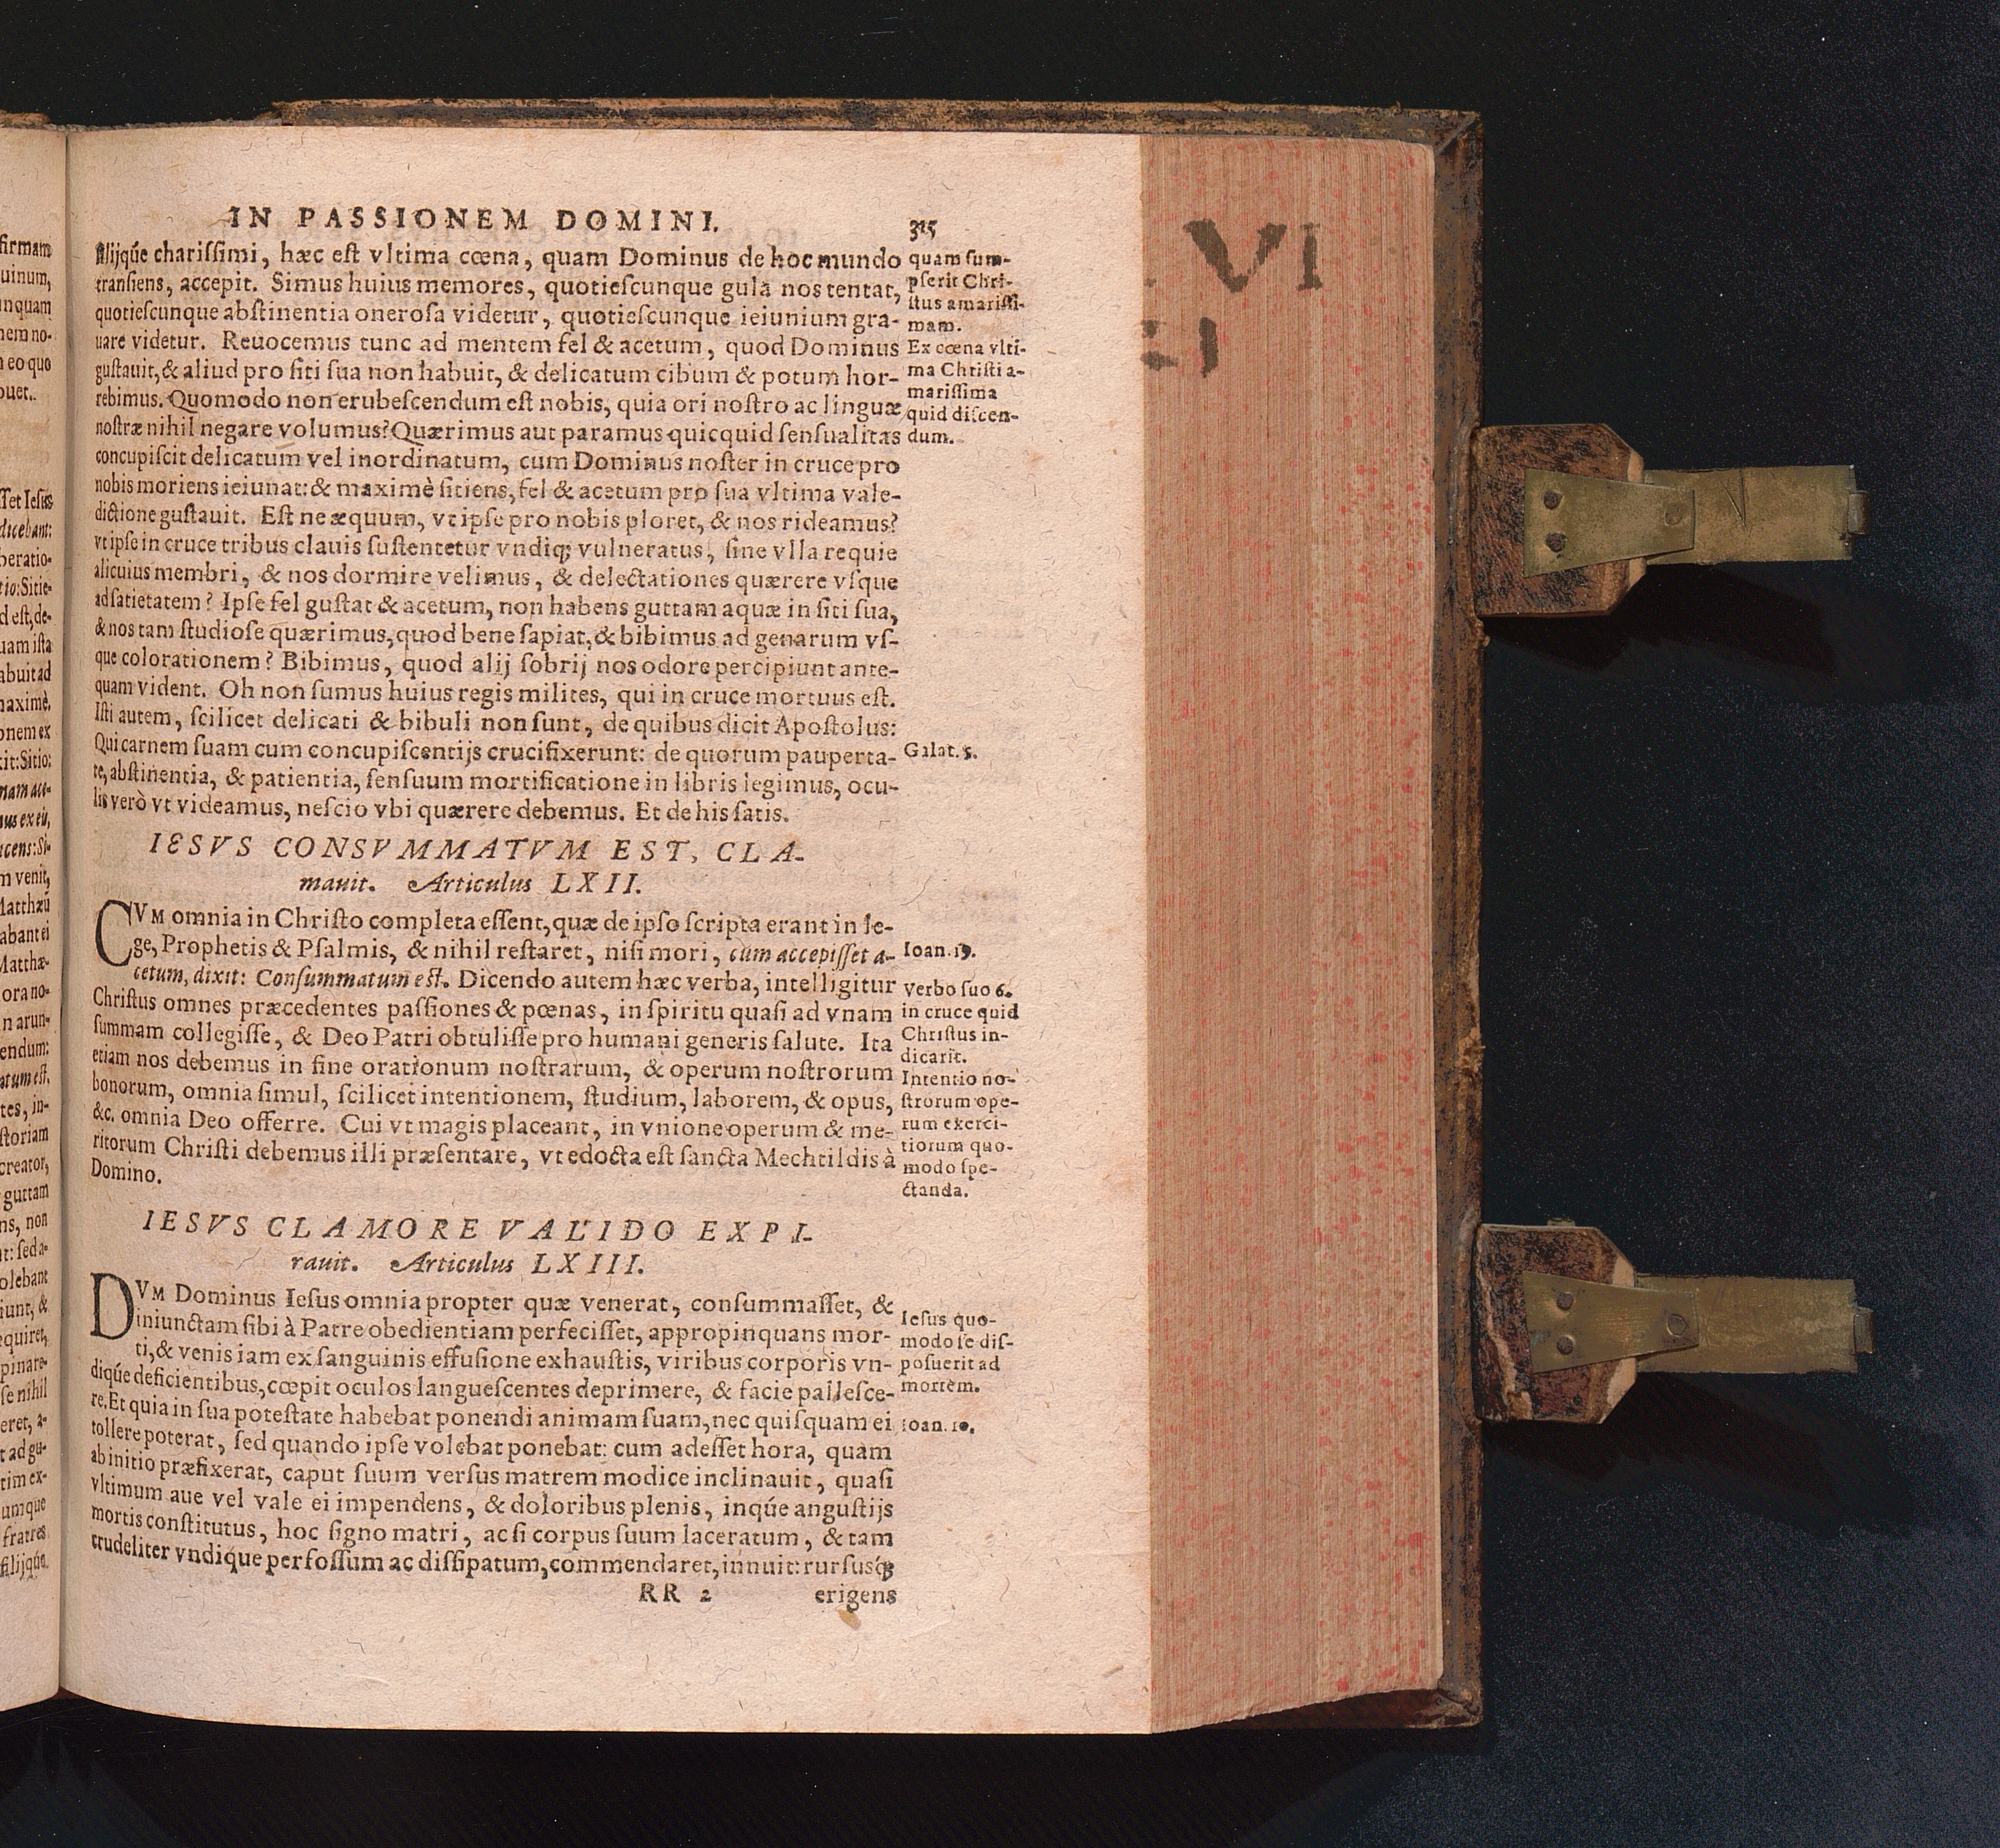 IN PASSIONEM DOMINI. 315
filijq́ue charissimi, hæc est vltima cœna, quam Dominus de hoc mundo
transiens, accepit. Simus huius memores, quotiescunque gula nos tentat,
quotiescunque abstinentia onerosa videtur, quotiescunque ieiunium gra-
uare videtur. Reuocemus tunc ad mentem fel & acetum, quod Dominus
gustauit, & aliud pro siti sua non habuit, & delicatum cibum & potum hor-
rebimus. Quomodo non erubescendum est nobis, quia ori nostro ac linguæ
nostræ nihil negare volumus? Quærimus aut paramus quicquid sensualitas
concupiscit delicatum vel inordinatum, cum Dominus noster in cruce pro
nobis moriens ieiunat: & maximè sitiens, fel & acetum pro sua vltima vale-
dictione gustauit. Est ne æquum, vt ipse pro nobis ploret, & nos rideamus?
vt ipse in cruce tribus clauis sustentetur vndiq; vulneratus, sine vlla requie
alicuius membri, & nos dormire velimus, & delectationes quærere vsque
ad satietatem? Ipse fel gustat & acetum, non habens guttam aquæ in siti sua,
& nos tam studiose quærimus, quod bene sapiat, & bibimus ad genarum vs-
que colorationem? Bibimus, quod alij sobrij nos odore percipiunt ante-
quam vident. Oh non sumus huius regis milites, qui in cruce mortuus est.
Isti autem, scilicet delicati & bibuli non sunt, de quibus dicit Apostolus:
Qui carnem suam cum concupiscentijs crucifixerunt: de quorum pauperta-
te, abstinentia, & patientia, sensuum mortificatione in libris legimus, ocu-
lis verò vt videamus, nescio vbi quærere debemus. Et de his satis.
quam sum-
pserit Chri-
stus amarissi-
mam.
Ex cœna vlti-
ma Christi a-
marissima
quid discen-
dum.
Galat. 5.
IESVS CONSVMMATVM EST, CLA-
mauit. Articulus LXII.
CVM omnia in Christo completa essent, quæ de ipso scripta erant in le-
ge, Prophetis & Psalmis, & nihil restaret, nisi mori, cum accepisset a-
cetum, dixit: Consummatum est. Dicendo autem hæc verba, intelligitur
Christus omnes præcedentes passiones & pœnas, in spiritu quasi ad vnam
summam collegisse, & Deo Patri obtulisse pro humani generis salute. Ita
etiam nos debemus in fine orationum nostrarum, & operum nostrorum
bonorum, omnia simul, scilicet intentionem, studium, laborem, & opus,
&c. omnia Deo offerre. Cui vt magis placeant, in vnione operum & me-
ritorum Christi debemus illi præsentare, vt edocta est sancta Mechtildis à
Domino.
Ioan. 19.
Verbo suo 6.
in cruce quid
Christus in-
dicarit.
Intentio no-
strorum ope-
rum exerci-
tiorum quo-
modo spe-
ctanda.
IESVS CLAMORE VALIDO EXPI-
rauit. Articulus LXIII.
DVM Dominus Iesus omnia propter quæ venerat, consummasset, &
iniunctam sibi à Patre obedientiam perfecisset, appropinquans mor-
ti, & venis iam ex sanguinis effusione exhaustis, viribus corporis vn-
diq́ue deficientibus, cœpit oculos languescentes deprimere, & facie pallesce-
re. Et quia in sua potestate habebat ponendi animam suam, nec quisquam ei
tollere poterat, sed quando ipse volebat ponebat: cum adesset hora, quam
ab initio præfixerat, caput suum versus matrem modice inclinauit, quasi
vltimum aue vel vale ei impendens, & doloribus plenis, inq́ue angustijs
mortis constitutus, hoc signo matri, ac si corpus suum laceratum, & tam
crudeliter vndique perfossum ac dissipatum, commendaret, innuit: rursusq́;
Iesus quo-
modo se dis-
posuerit ad
mortem.
Ioan. 10.
RR 2 erigens
VI